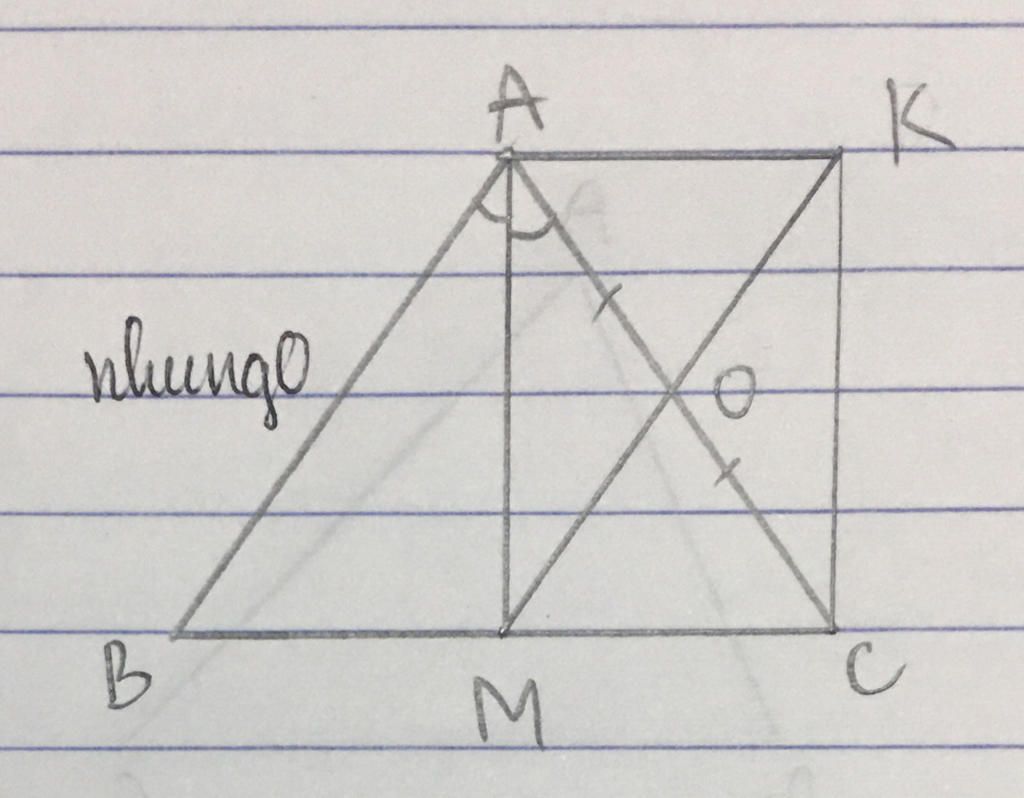 A
K
nhung0
O
B
M
C